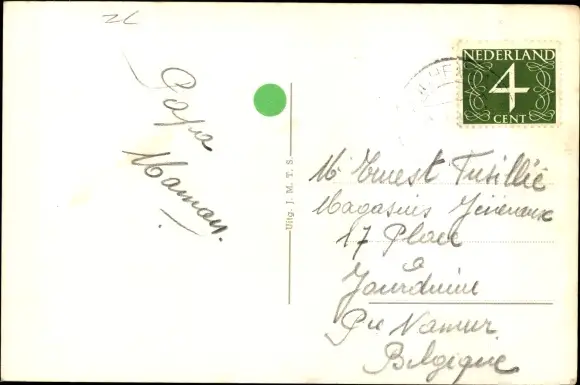 Papa
Maman.
Uitg. J. M. T. S.
NEDERLAND
4
CENT
Mr Ernest Fusillié
Magasins Généraux
17 Place
à
Jourdinne
Pce Namur
Belgique